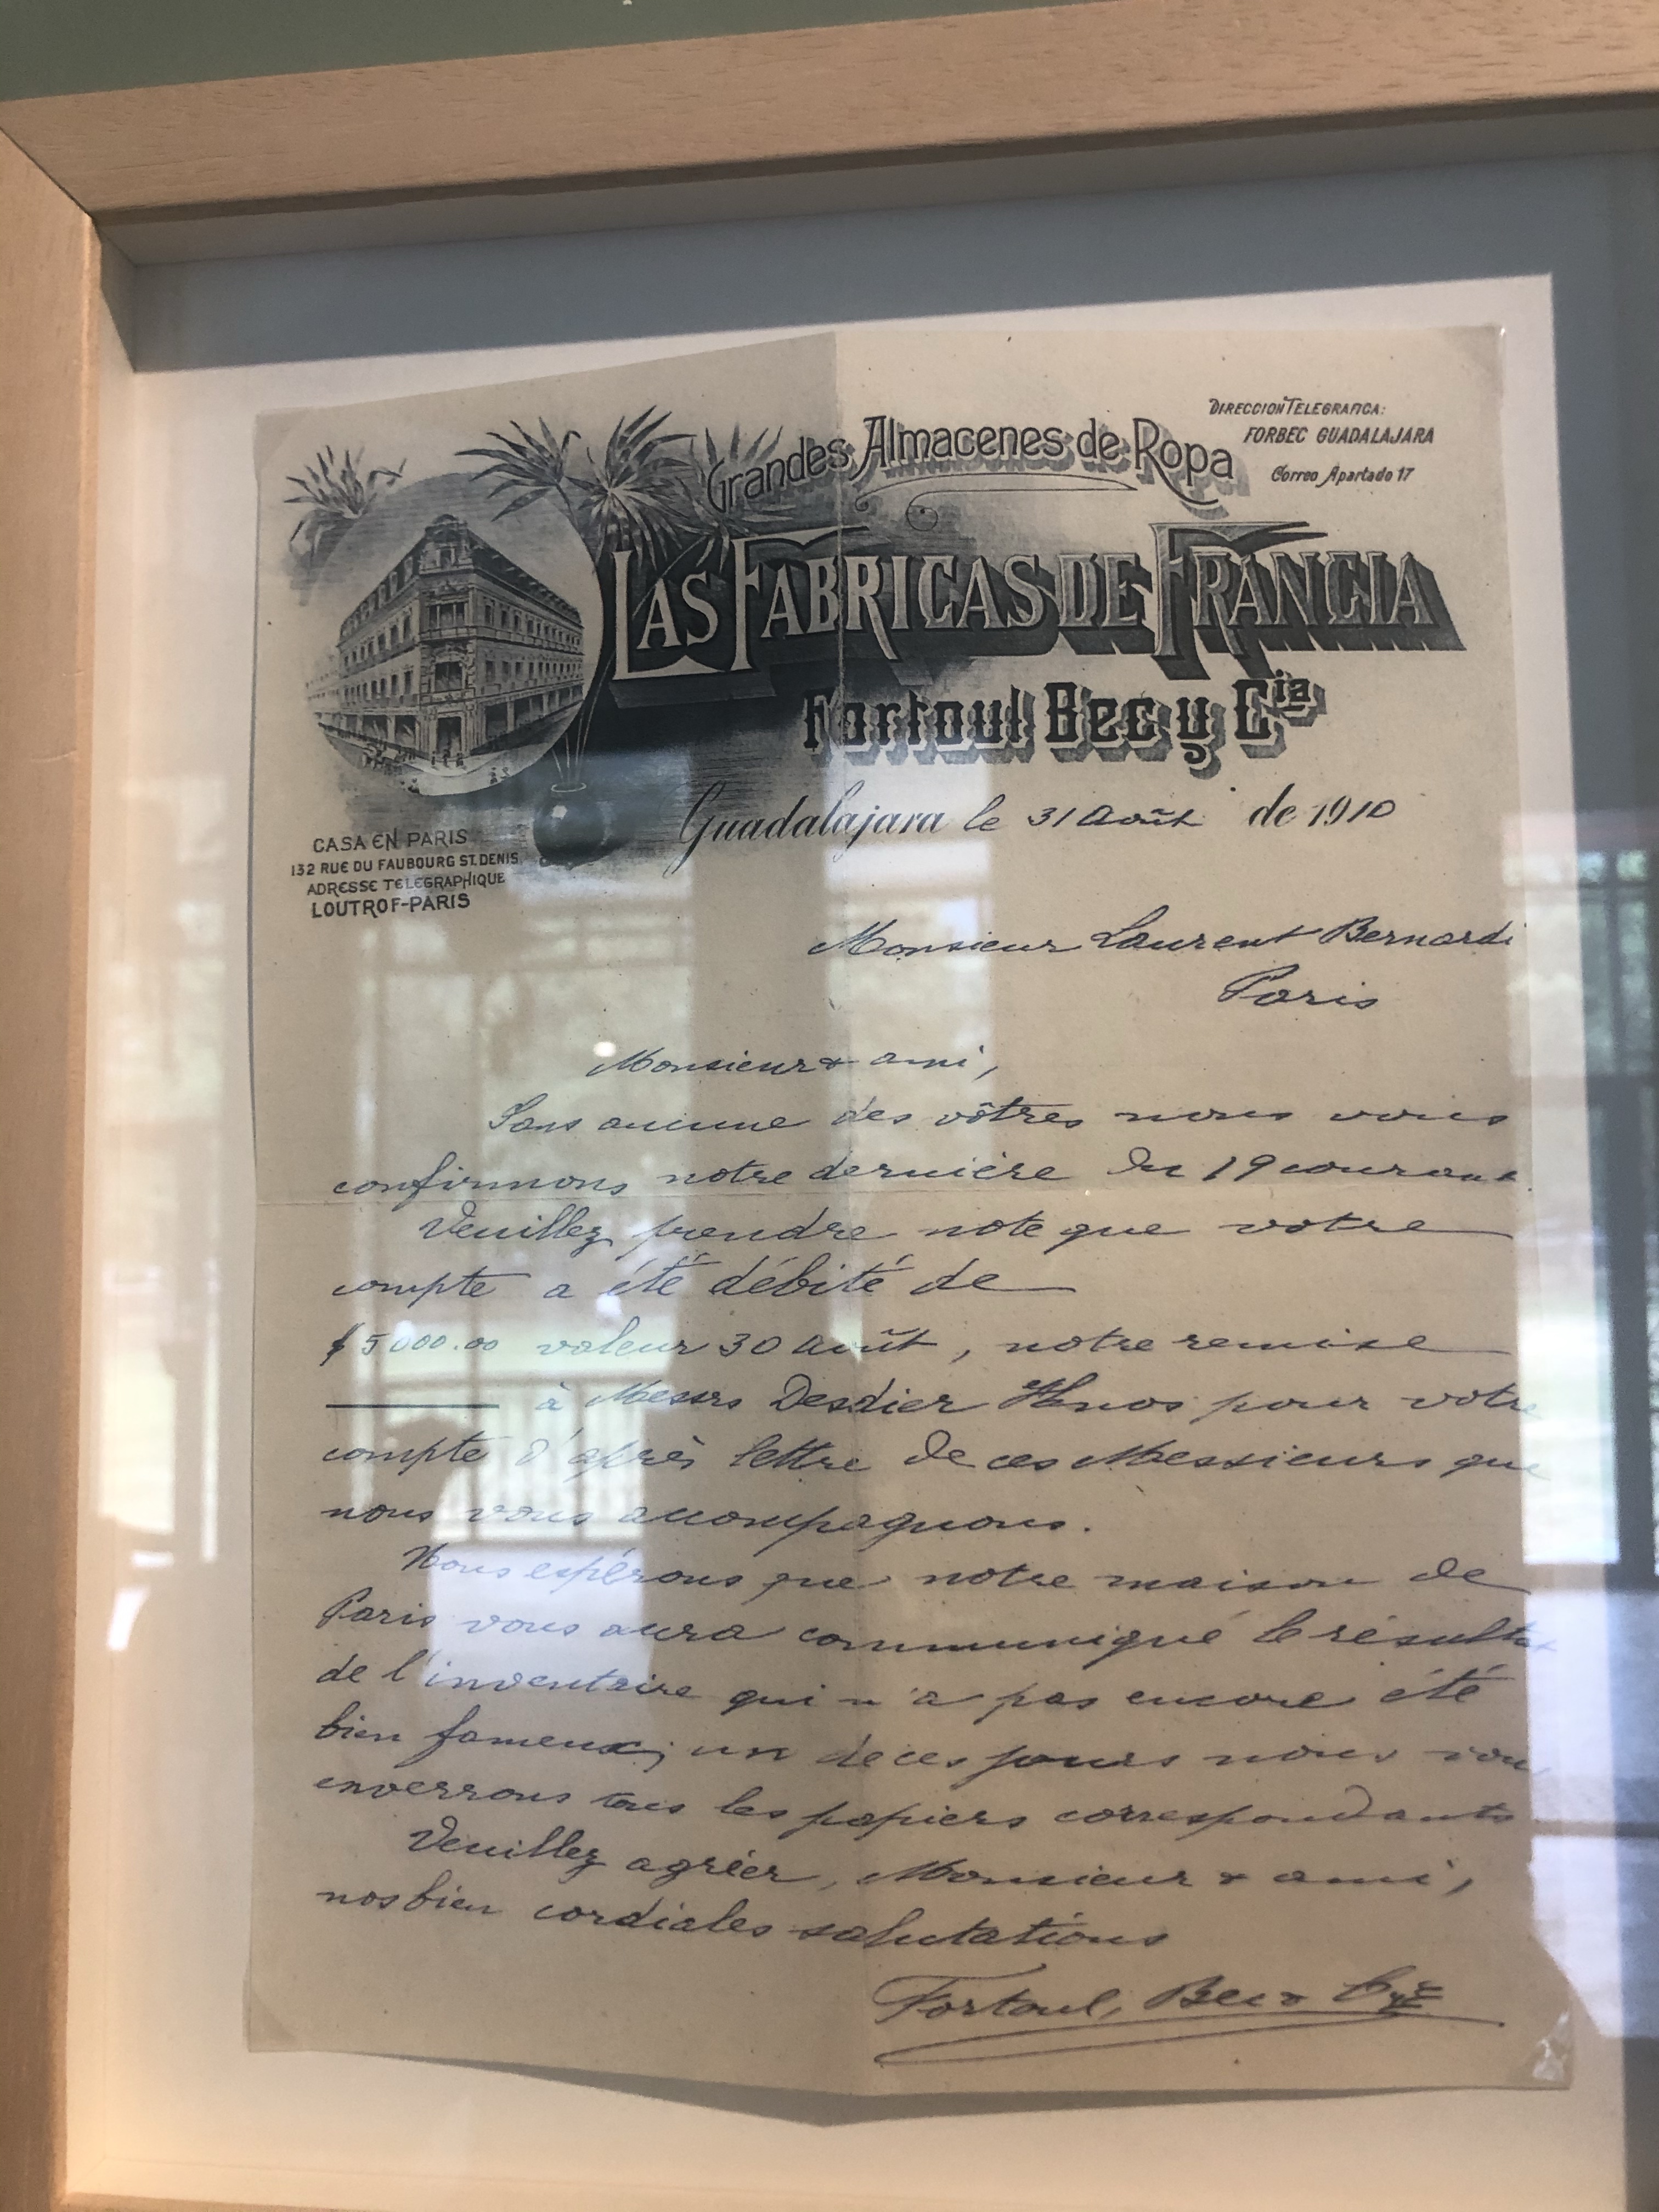 Grandes Almacenes de Ropa
DIRECCION TELEGRAFICA:
FORBEC GUADALAJARA
Correo Apartado 17
LAS FABRICAS DE FRANCIA
Fortoul Bec y Cia
CASA EN PARIS
132 RUE DU FAUBOURG ST. DENIS
ADRESSE TELEGRAPHIQUE
LOUTROF-PARIS
Guadalajara le 31 Août de 1910
Monsieur Laurent Bernardi
Paris
Monsieur & ami,
Sans aucune des vôtres nous vous
confirmons notre dernière du 19 courant.
Veuillez prendre note que votre
compte a été débité de
$5000.00 valeur 30 Août, notre remise
à Messrs Desdier Hnos pour votre
compte d'après lettre de ces Messieurs que
nous vous accompagnons.
Nous espérons que notre maison de
Paris vous aura communiqué le résultat
de l'inventaire qui n'a pas encore été
bien fameux; un de ces jours nous vous
enverrons tous les papiers correspondants
Veuillez agréer, Monsieur & ami,
nos bien cordiales salutations
Fortoul, Bec & Cie